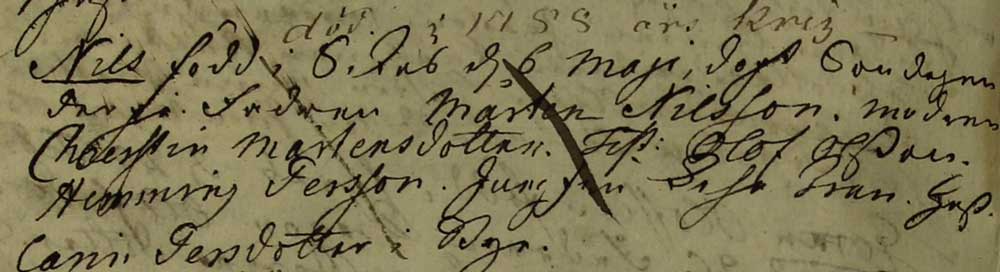 död. i 1788 års krig
Nils född i Sikeb d. 6 Maji, döpt Söndagen
der på. Fadren Mårten Nilsson. modren
Cherstin Mårtensdotter. Test: Olof
Hemming Persson. Jungfru Tran. Hust.
Carin Persdotter i Bye.